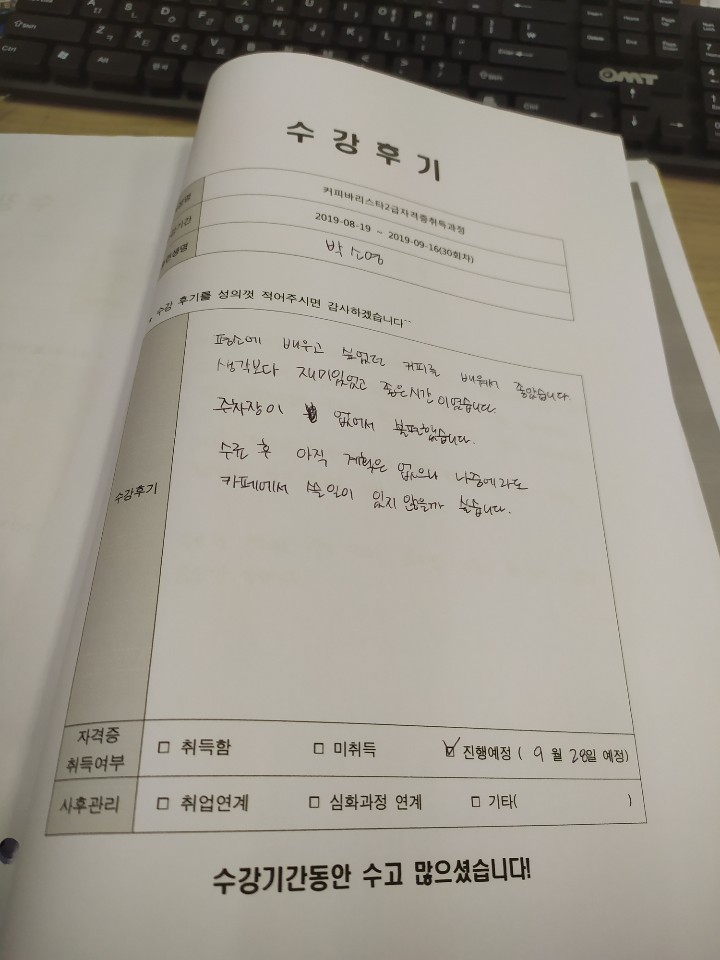 수강후기
커피바리스타2급자격증취득과정
기간 2019-08-19 ~ 2019-09-16(30회차)
박소영
* 수강 후기를 성의껏 적어주시면 감사하겠습니다~
수강후기
평소에 배우고 싶었던 커피를 배워서 좋았습니다.
생각보다 재미있었고 좋은시간이었습니다
주차장이 없어서 불편했습니다.
수료 후 아직 계획은 없으나 나중에라도
카페에서 쓸일이 있지 않을까 싶습니다.
자격증 취득여부 □ 취득함 □ 미취득 ☑ 진행예정 ( 9 월 28일 예정)
사후관리 □ 취업연계 □ 심화과정 연계 □ 기타( )
수강기간동안 수고 많으셨습니다!
OMT